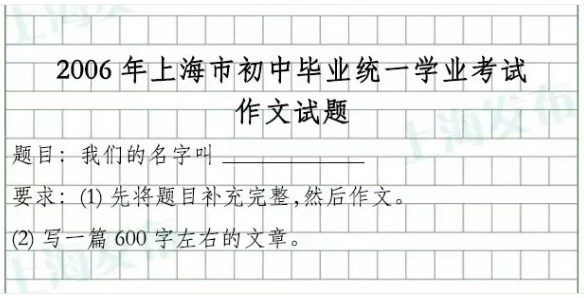 2006 年上海市初中毕业统一学业考试
作文试题
题目：我们的名字叫 ____________
要求：(1) 先将题目补充完整,然后作文。
(2) 写一篇 600 字左右的文章。
上海发布